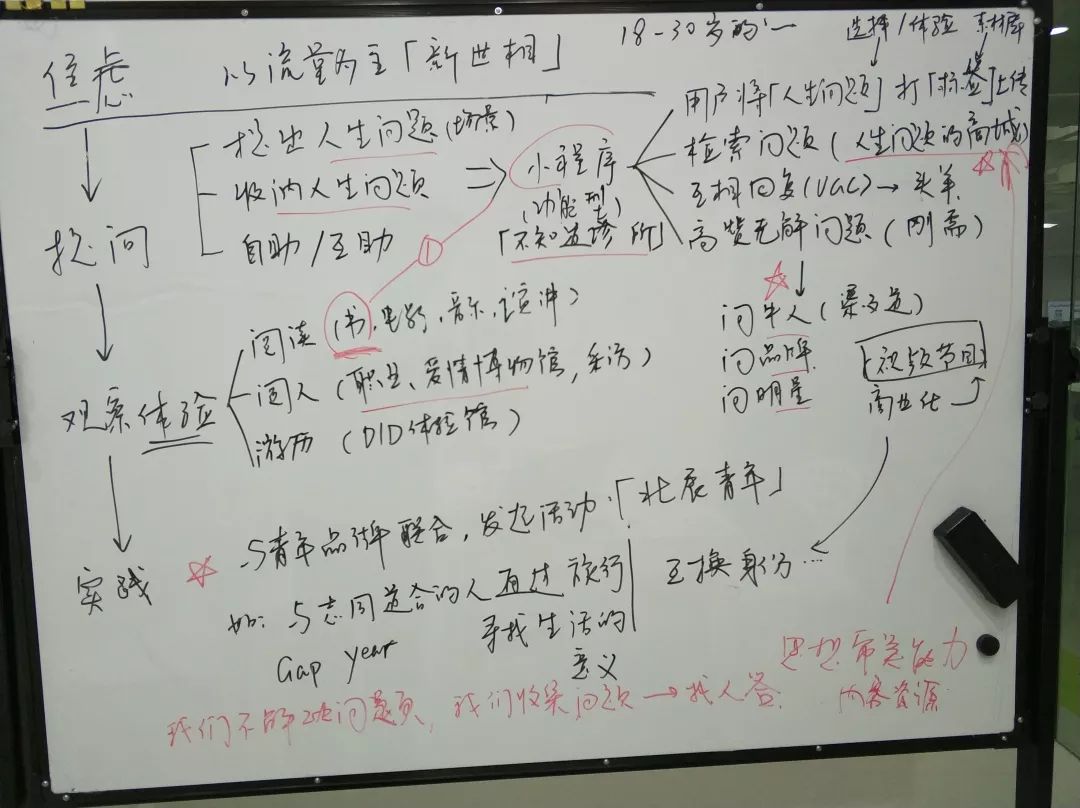 焦虑 以流量为主「新世相」 18-30岁的
选择/体验 素材库
提出人生问题(场景)
收纳人生问题
自助/互助
小程序
(功能型)
「不知道诊所」
用户将「人生问题」打「标签」上传
检索问题(人生问题的商城)
互相回复(UGC)→
高赞无解问题(刚需)
提问
①
阅读(书,电影,音乐,演讲)
阅人(职业、爱情博物馆,采访)
游历(DID体验馆)
观察体验
问牛人(渠道)
问品牌
问明星
「视频节目」
商业化
实践
与青年品牌联合,发起活动.「北辰青年」
如:与志同道合的人通过旅行
寻找生活的
意义
Gap year
互换身份…
思想 能力
内容资源
我们不解决问题,我们收集问题→找人答.